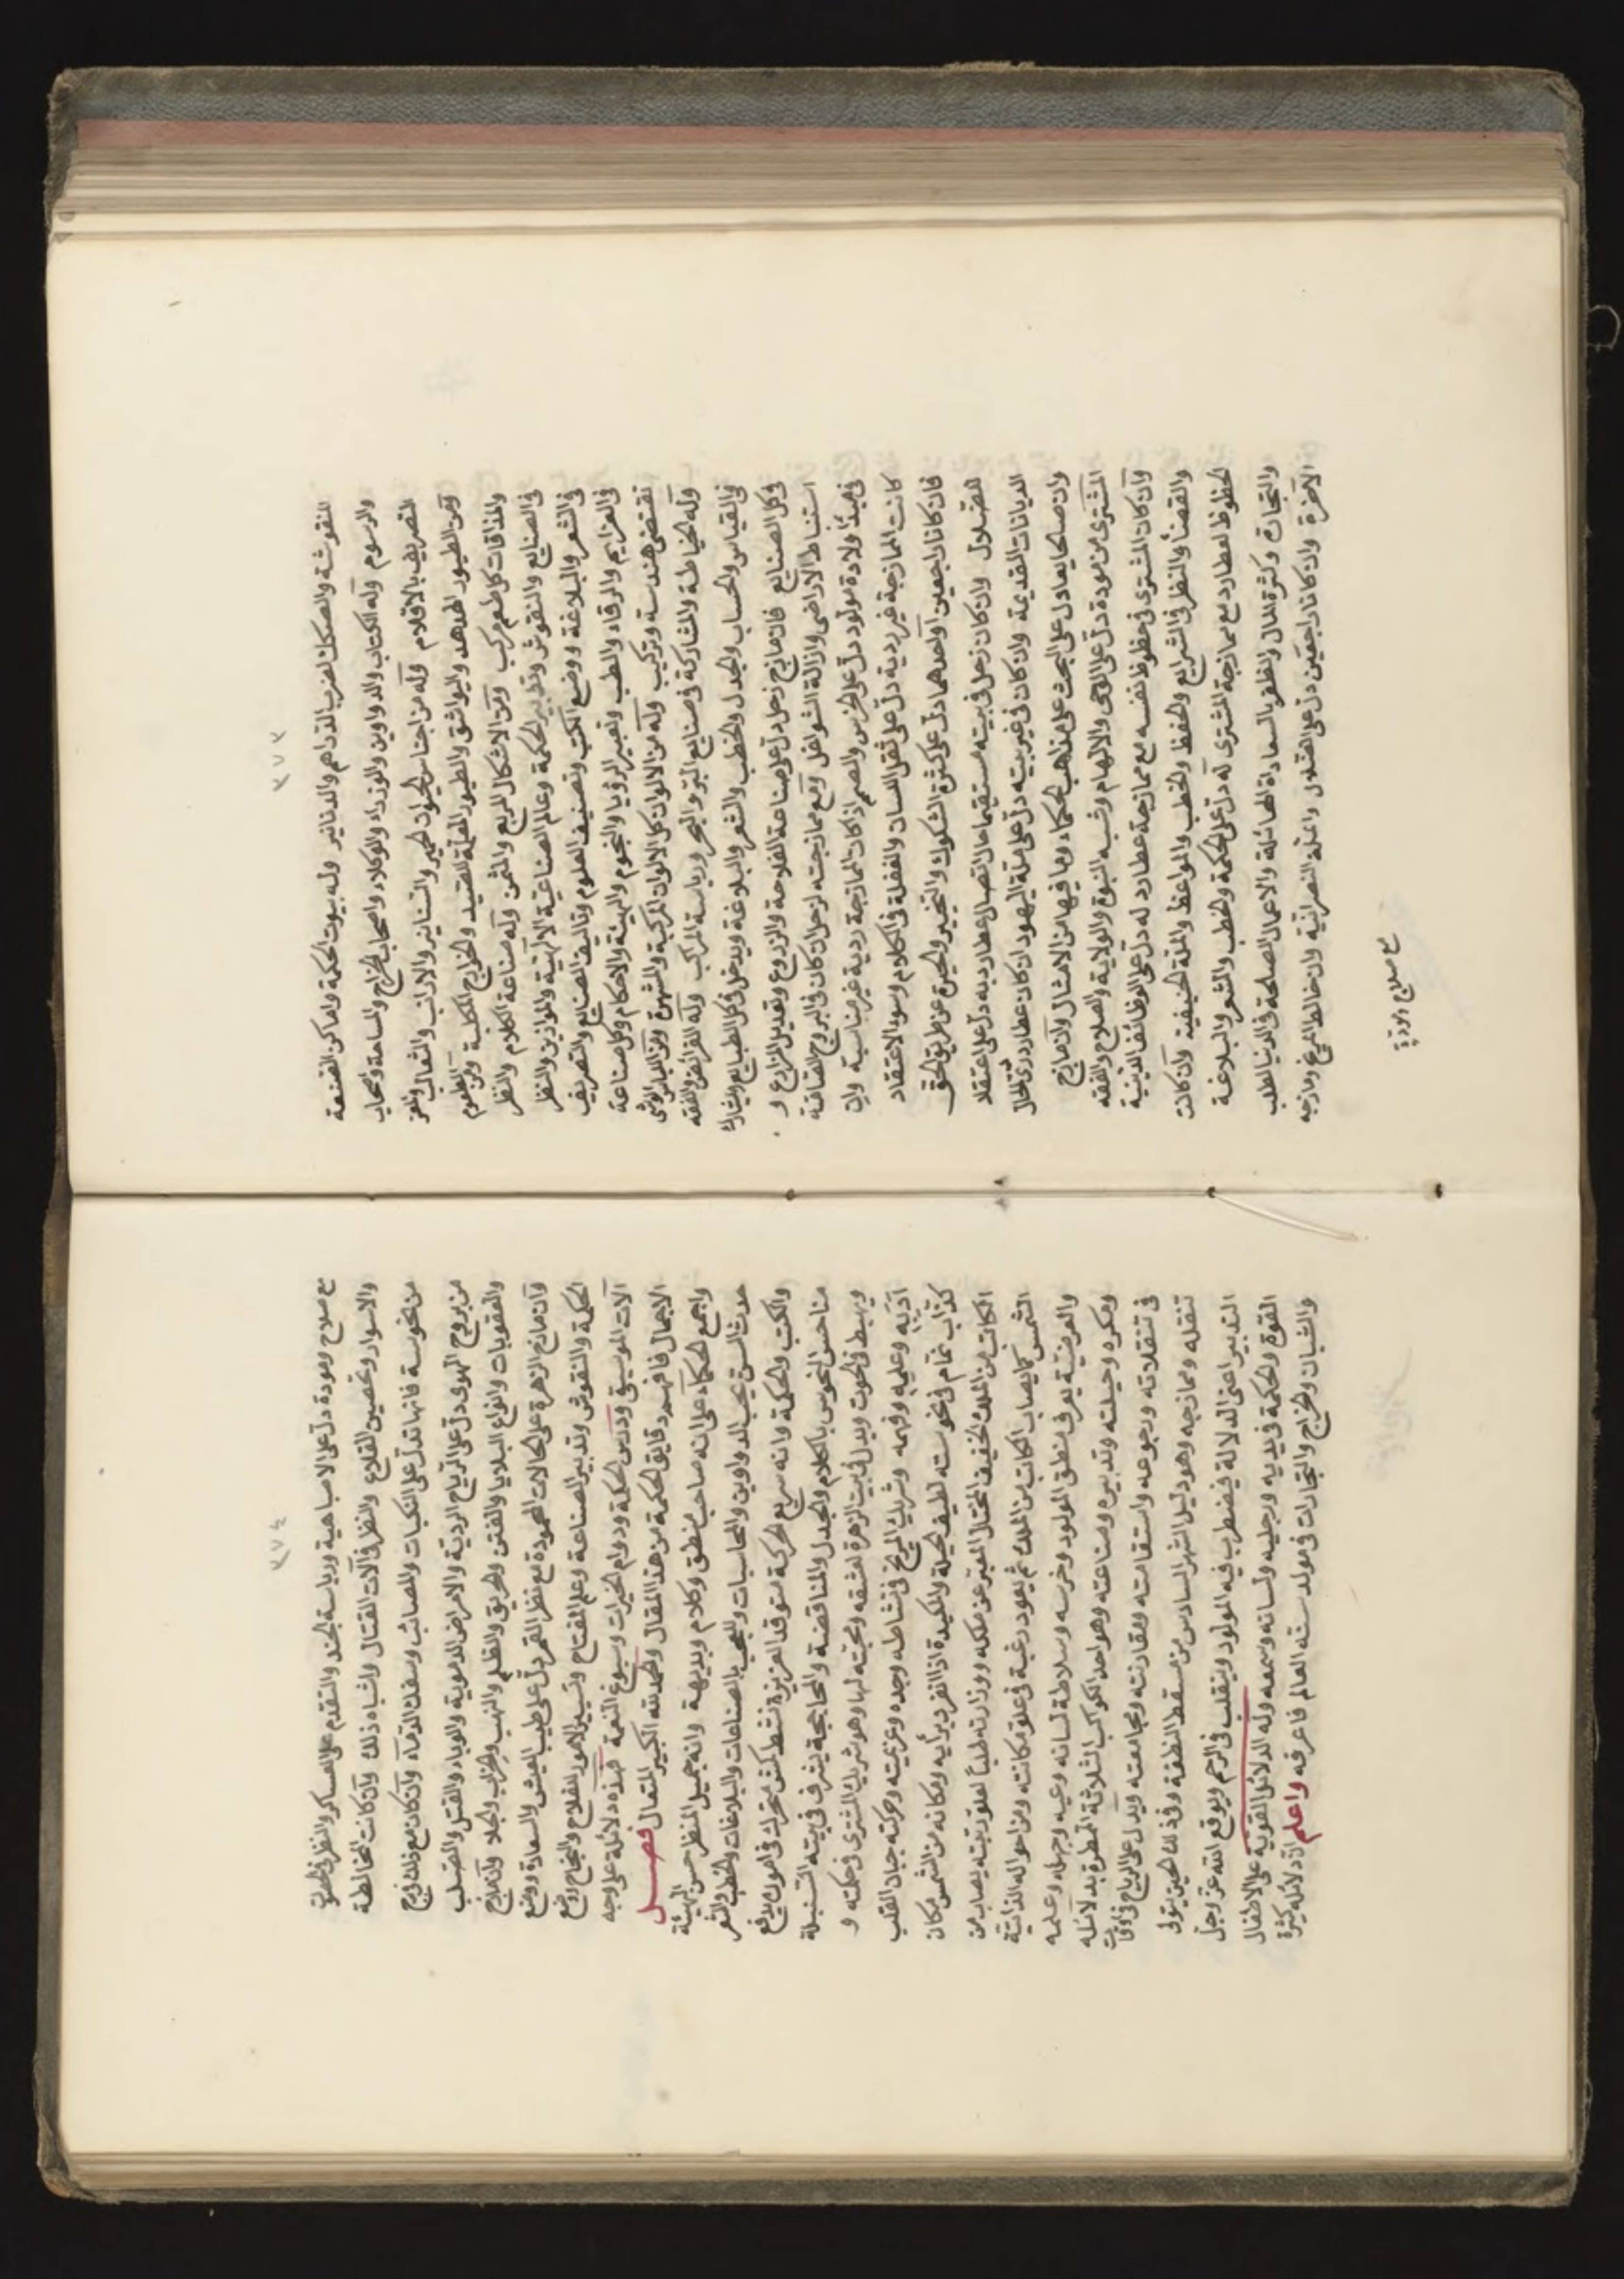 ٣٧٣
المنقوشة والصكك لضرب الدراهم والدنانير وله بيوت الحكمة واماكن القنعة
والرسوم وله الكتاب والدواوين والوزراء والوكلاء واصحاب الخراج والمساحة واصحاب
التصريف بالاقلام وله من اجناس الحيوان الحمير والسنانير والارانب والثعالب والعز
ومن الطيور الهدهد والبواشق والطيور المعلمة للصيد والخوارج المكلبة ومن الطعوم
والمذاقات كل طعم مركب ومن الاشكال المربع والمثمن وله صناعة الكلام والنظر
فى الصنايع والنقوش وتدبير الحكمة وعالم الصناعية الالهية والموازين والنظر
فى الشعر والبلاغة ووضع الكتب وتصنيف العلوم وتاليف الصنايع والتصريف
فى العزايم والرقاء والطب وتعبير الرؤيا والنجوم والهيئة والاحكام وكل صناعة
تقتضى هندسة وتركيب وله من الالوان كل الالوان المركبة والمشهرة ومن اللباس الوشى
وله الخياطة والمشاركة فى صنايع البر والبحر ورياسة المراكب وله الفرائض والفقه
فى القياس والحساب والجدل والخطب والشعر والبلاغة ويدخل فى كل الطبايع ويشارك
فى كل الصنايع فان مازج زحل دل على صناعة الفلاحة والزروع وتعديل المزارع و
استنباط الاراضى وازالة الشواغل ومع ممازجته لزحل ان كان فى البروج الصامتة
فى مبدا ولادة مولود دل على الخرس والصمم اذا كان الممازجة ردية غير مناسبة وان
كانت الممازجة غير ردية دل على ثقل اللسان والغفلة فى الكلام وسوء الاعتقاد
فان كانا راجعين او احدهما دل على كثرة الشكوك والتحير والحيرة عن طريق الحق
هضلول وان كان زحل فى بيته مستقيما حال اتصال عطارد به دل على اعتقاد
الديانات القديمة وان كان فى غير بيته دل على ملة اليهود ان كان عطارد ردى الحال
وان صالحا يعادل على البحث على مذاهب الحكماء وما فيها من الامثال وان مازج
المشترى من مودة دل على الوحى والالهام وشبه النبوة والولاية والصلاح والفقه
وان كان المشترى فى حظوظ نفسه مع ممازجة عطارد له دل على الوظائف الدينية
والقضاء والنظر فى الشرايع والحفظ والخطب والمواعظ والملة الحنيفية وان كانت
الحظوظ لعطارد مع ممازجة المشترى له دل على الحكمة والخطب والشعر والبلاغة
والتجارة وكثرة المال والظفر بالسعادة الهائلة والاعمال الصالحة فى الدنيا لطلب
الآخرة وان كانا راجعين دل على الضلول وامله النصرانية وان خالط المريخ ومازجه
مع صلاح ومودة
٣٧٤
مع صلاح ومودة دل على الاسباهية ورياسة الجند والتقدم على العساكر والنظر فى الحصون
والاسوار وتحصين القلاع والنظر فى آلات القتال واشباه ذلك وان كانت المخالطة
من نحوسة فانها تدل على النكبات والمصائب وسفك الدماء وان كان مع ذلك فى برج
من بروج الهوى دل على الرياح الردية والامراض الدموية والوباء والقتل والصلب
والعقوبات وانواع البلايا والفتن والحريق والظلم والنهب والحرب والجلاء وان مازج
وان مازج الزهرة على الحالات المحمودة مع نظر القمر دل على طيب العيش والسعادة ووضع
الحكمة والنقوش وتدبير الصناعة وعلم المفتاح وتسيير الامور للفلاح والنجاح ووضع
آلات الموسيقى ودرس الحكمة ودوام الخيرات وسبوغ النعمة فهذه دلائله على وجه
الاجمال فافهم دقايق الحكمة من هذا المقال والحمد لله الكبير المتعال فصل
واجمع الحكماء على انه صاحب منطق وكلام وبديهة وانه جميل المنظر حسن الهيئة
حدث السن يحب الدواوين والحاسبات واللعب بالصناعات والبلاغات والخطب والشعر
والكتب والحكمة وانه سريع الحركة متوقد الغريزة نشط كمش متحرك فى امور بدافع
مناحس النحوس بالكلام والجدل والمناقضة والمحاججة يشرف فى بيته السنبلة
ويهبط فى الحوت ويدل فى بيت الزهرة لعشقه ومحبته لها وهو شريك المشترى فى حكمته و
ادبه وعلمه وفهمه وشريك المريخ فى نشاطه وجده وعزيمته وحركته جبان القلب
كذاب نمام فى نحوسته لطيف الحيلة والمكيدة اذا انفرد برأيه ومكانه من الشمس مكان
الكاتب من الملك الخفيف المختال المعبر عن ملكه ووزارته طلبا لعلو رتبته يصاب من
الشمس كما يصاب الكاتب من الملك ثم يعود رغبة فى علو مكانته ومن احواله الذاتية
والعرضية يعرف منطق المولود وخرسه وسلاطة لسانه وعيه وجهله وعلمه
ومكره وحيلته وتدبيره وصناعته وهو احد الكواكب الثلاثة الممطرة بدلائله
فى تنقلاته ورجوعه واستقامته ومقارنته ومجامعته ويدل على الرياح فى اوقات
تنقله وممازجه وهو دليل الشهر السادس من مسقط النطفة وفى ذلك الحين يتولى
التدبير اعنى الدلالة فيضطرب فيه المولود وينقلب فى الرحم ويوقع الله عز وجل
القوة والحكمة فى يديه ورجليه ولسانه وسمعه وله الدلائل القوية على الاطفال
والشبان والخراج والتجارات فى مولد سنة العالم فاعرفه واعلم ان دلائله كثيرة